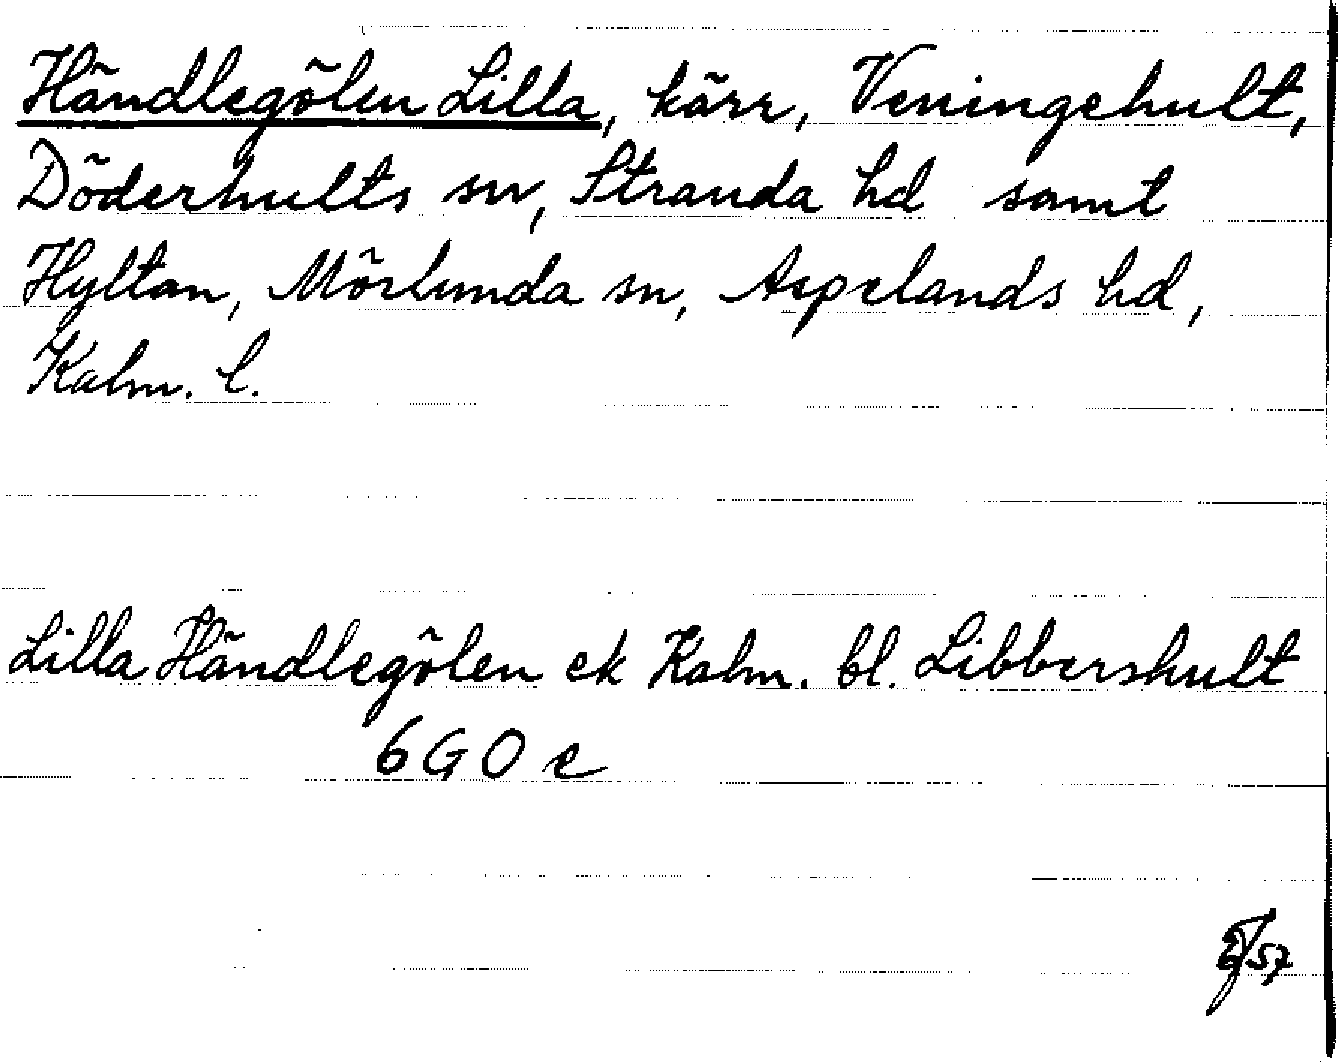 Händlegölen Lilla, kärr, Veningehult,
Döderhults sn, Stranda hd samt
Hyltan, Mörlunda sn, Aspelands hd,
Kalm. l.
Lilla Händlegölen ek Kalm. bl. Libbershult
6 G O c
57